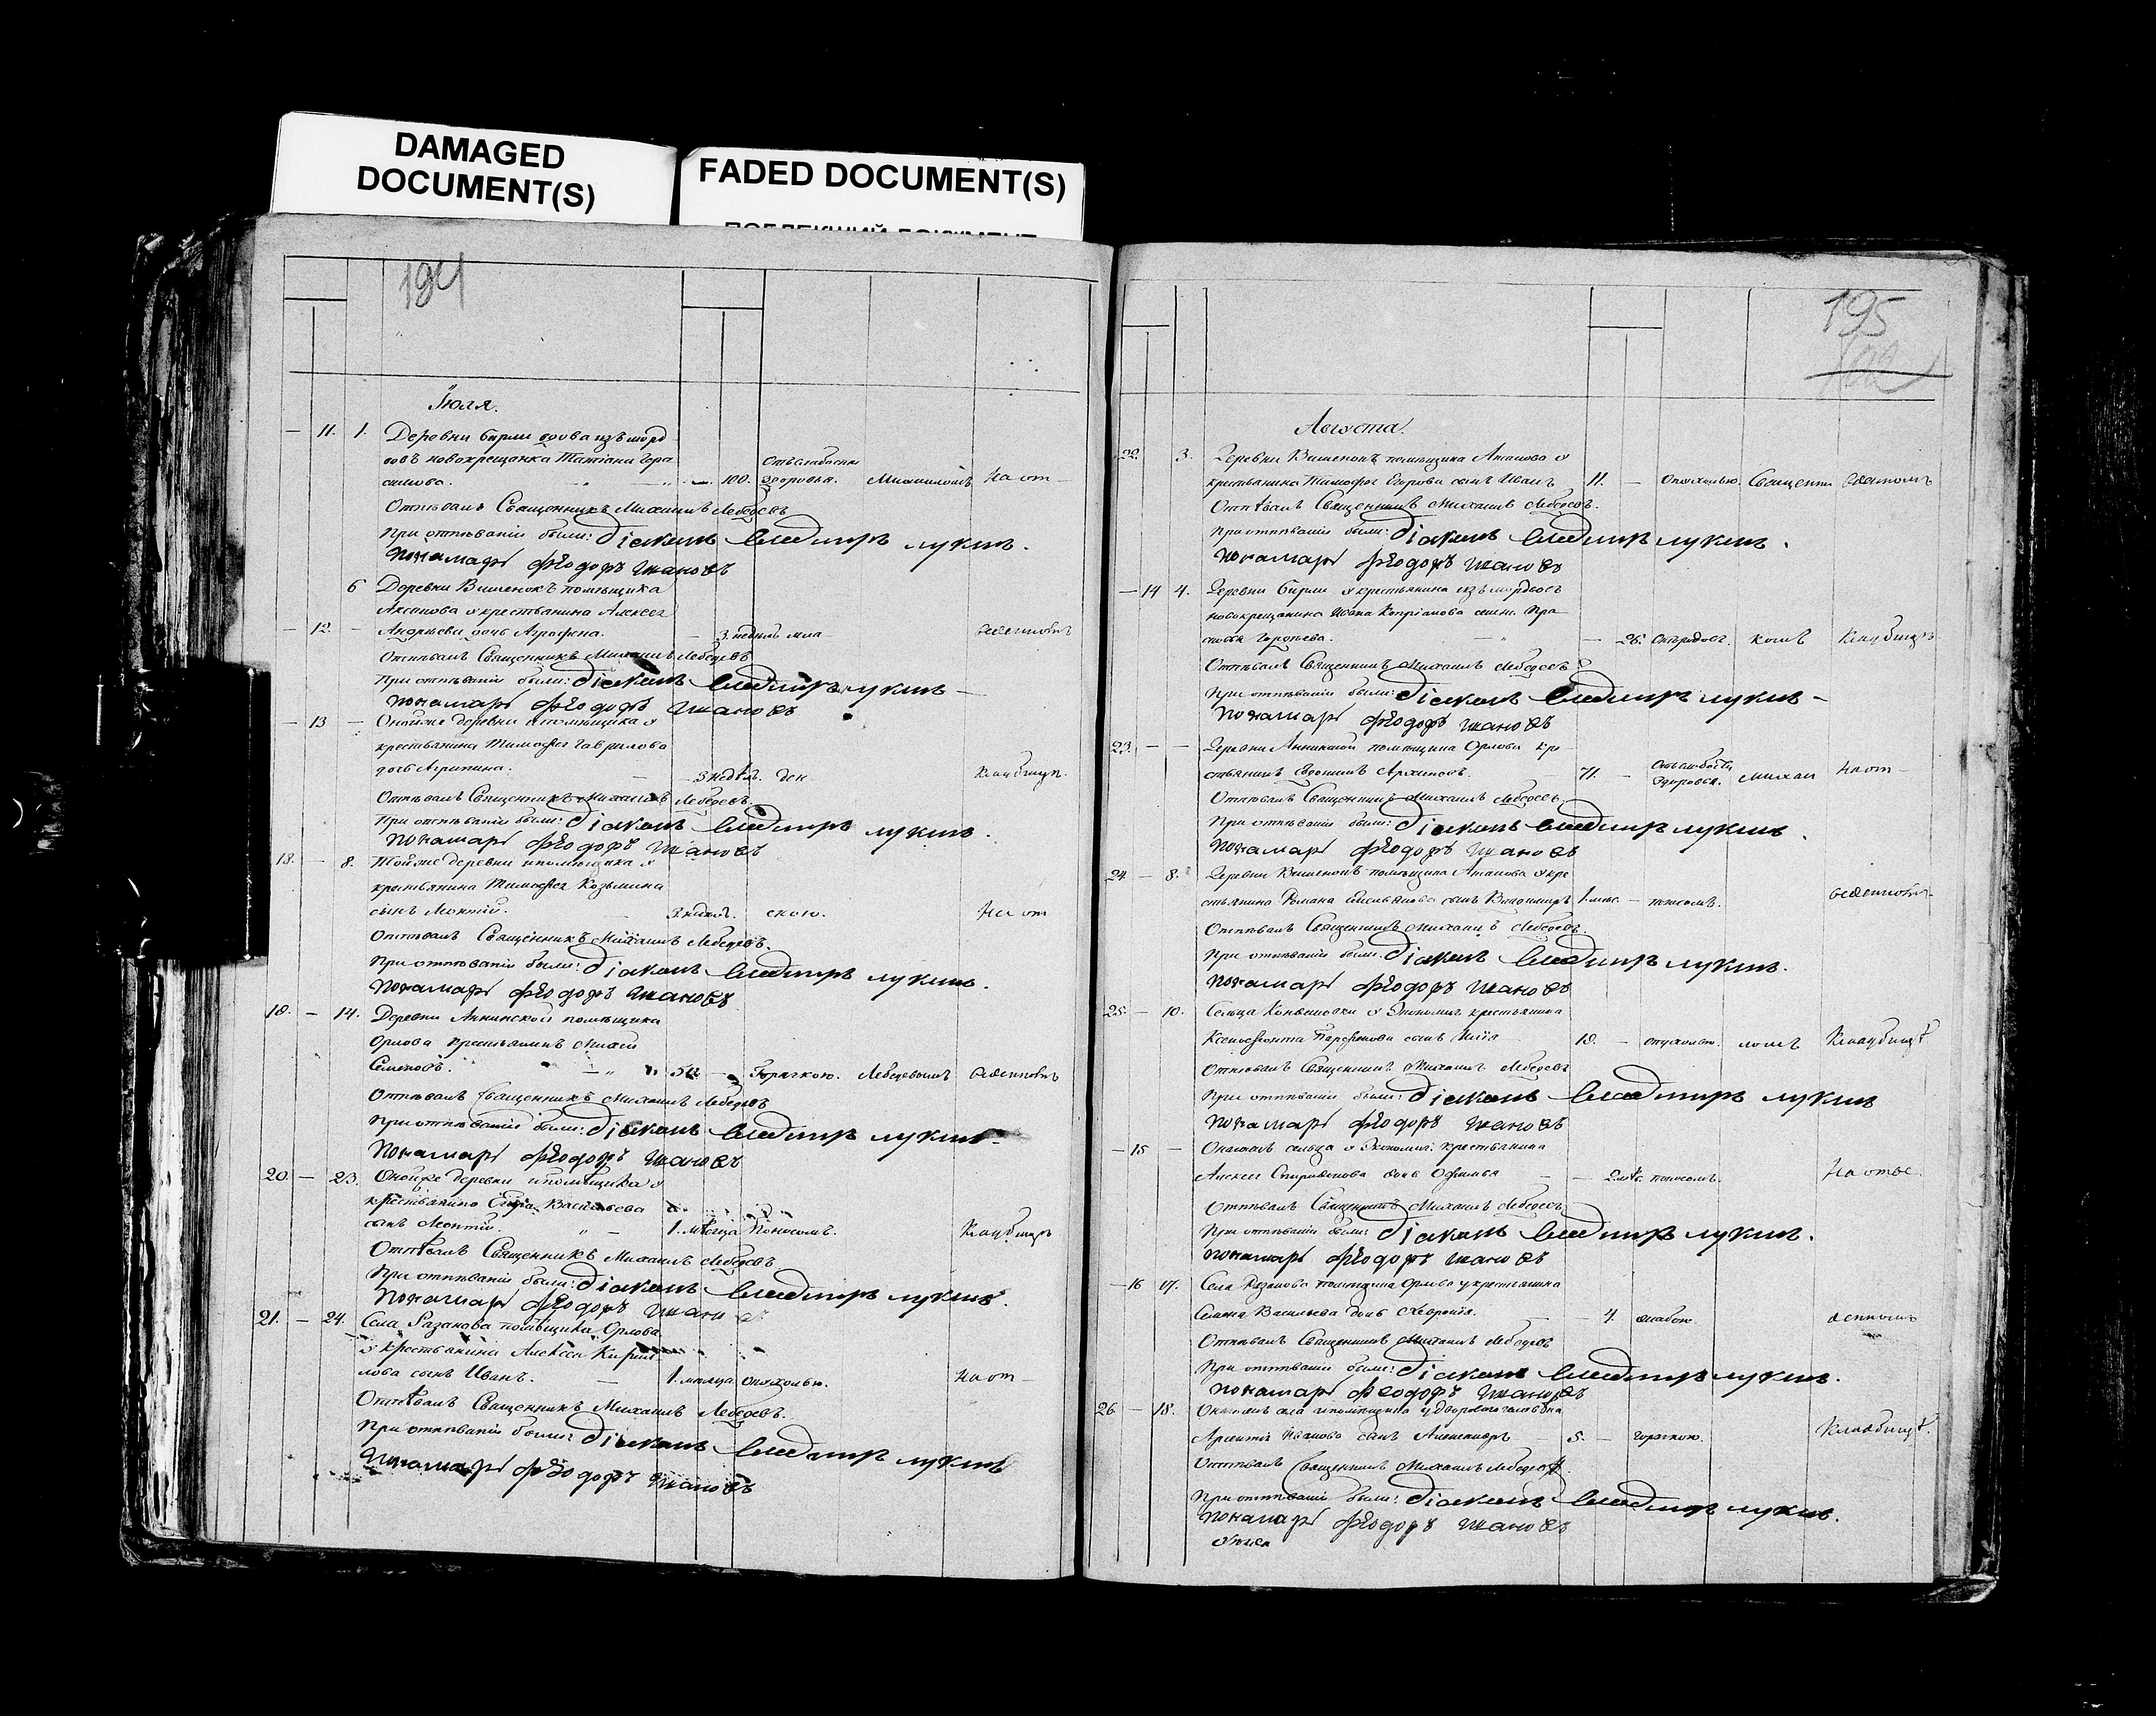 DAMAGED
DOCUMENT(S)
FADED DOCUMENT(S)
194
Іюля.
11. 1. Деревни Бирли вдова изъ морд
вовъ новокрещанка Татіана Гера
симова. 100. Отъ слабости здоровья. Михаиломъ На от
Отпѣвалъ Священникъ Михаилъ Лебедевъ
При отпѣваніи были: Діаконъ Владимиръ Лукинъ.
Пономарь Ѳеодоръ Ивановъ
6 Деревни Вишенокъ помѣщика
крестьянина Алексея
12. Андрѣева дочь Агрофена. 3. недѣль
Отпѣвалъ Священникъ Михаилъ Лебедевъ
При отпѣваніи были: Діаконъ Владимиръ Лукинъ
Пономарь Ѳеодоръ Ивановъ
13 Оной же деревни и помѣщика у
крестьянина Тимофея Гаврилова
дочь Агрипина. 3 недѣл. Кладбищѣ.
Отпѣвалъ Священникъ Михаилъ Лебедевъ.
При отпѣваніи были: Діаконъ Владимиръ Лукинъ.
Пономарь Ѳеодоръ Ивановъ
18. 8. Той же деревни и помѣщика у
крестьянина Тимофея Козьмина
сынъ Леонтій. 3. недѣл. скою. На от
Отпѣвалъ Священникъ Михаилъ Лебедевъ.
При отпѣваніи были: Діаконъ Владимиръ Лукинъ.
Пономарь Ѳеодоръ Ивановъ
19. 14. Деревни Аннинской помѣщика
Орлова крестьянинъ
Семеновъ. Горячкою. Лебедевымъ
Отпѣвалъ Священникъ Михаилъ Лебедевъ
При отпѣваніи были: Діаконъ Владимиръ Лукинъ
Пономарь Ѳеодоръ Ивановъ
20. 23. Оной же деревни и помѣщика у
крестьянина Егора Васильева
сынъ Леонтій. 1. мѣсяца Поносомъ. Кладбищѣ
Отпѣвалъ Священникъ Михаилъ Лебедевъ
При отпѣваніи были: Діаконъ Владимиръ Лукинъ.
Пономарь Ѳеодоръ Ивановъ
21. 24. Села Разакова помѣщика Орлова
у крестьянина Алексея Кирил
лова сынъ Иванъ. 1. мѣсяца опухолью. На от
Отпѣвалъ Священникъ Михаилъ Лебедевъ.
При отпѣваніи были: Діаконъ Владимиръ Лукинъ
Пономарь Ѳеодоръ Ивановъ
195
Августа.
22. 3. Деревни Вишенокъ помѣщика у
крестьянина Тимофея сынъ Иванъ 11. Опухолью. Священни
Отпѣвалъ Священникъ Михаилъ Лебедевъ.
При отпѣваніи были: Діаконъ Владимиръ Лукинъ.
Пономарь Ѳеодоръ Ивановъ
14 4. Деревни Бирли у крестьянина изъ мордвовъ
новокрещанина Ивана Кипріанова
26. Отъ родовъ. комъ Кладбищѣ
Отпѣвалъ Священникъ Михаилъ Лебедевъ
При отпѣваніи были: Діаконъ Владимиръ Лукинъ
Пономарь Ѳеодоръ Ивановъ
23. Деревни Аннинской помѣщика Орлова кре
стьянинъ Архиповъ. 71. Отъ слабости здоровья. Михаи На от
Отпѣвалъ Священникъ Михаилъ Лебедевъ.
При отпѣваніи были: Діаконъ Владимиръ Лукинъ.
Пономарь Ѳеодоръ Ивановъ
24 8. Деревни Вишенокъ помѣщика у кре
стьянина Романа сынъ Владимиръ 1. мѣс. поносомъ.
Отпѣвалъ Священникъ Михаилъ Лебедевъ.
При отпѣваніи были: Діаконъ Владимиръ Лукинъ.
Пономарь Ѳеодоръ Ивановъ
25. 10. Сельца у Экономич. крестьянина
Ксенофонта Парфенова сынъ Илія 19. опухолью. ломъ Кладбищѣ
Отпѣвалъ Священникъ Михаилъ Лебедевъ
При отпѣваніи были: Діаконъ Владимиръ Лукинъ
Пономарь Ѳеодоръ Ивановъ
15 сельца у Экономич. крестьянина
Алексея Спиридонова дочь 2 мѣс. поносомъ. На отве
Отпѣвалъ Священникъ Михаилъ Лебедевъ
При отпѣваніи были: Діаконъ Владимиръ Лукинъ.
Пономарь Ѳеодоръ Ивановъ
16 17. Села Разакова помѣщика Орлова у крестьянина
Семена Васильева дочь Хевронія. 4. денномъ
Отпѣвалъ Священникъ Михаилъ Лебедевъ
При отпѣваніи были: Діаконъ Владимиръ Лукинъ.
Пономарь Ѳеодоръ Ивановъ
26 18. села и помѣщика у дворового человѣка
Иванова сынъ Александръ 5. горячкою. Кладбищѣ.
Отпѣвалъ Священникъ Михаилъ Лебедевъ.
При отпѣваніи были: Діаконъ Владимиръ Лукинъ.
Пономарь Ѳеодоръ Ивановъ